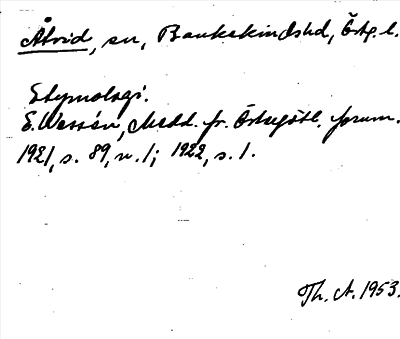 Åtvid, sn, Bankekindshd, Östg. l.
Etymologi.
E. Wessén, Medd. fr. Östergötl. fornm.
1921, s. 89, n. 1; 1922, s. 1.
Th. A. 1953.